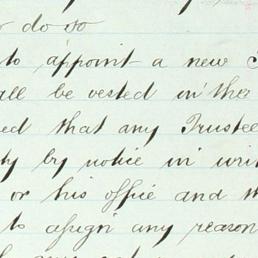 do so
to appoint a new
all be vested in the
ed that any Trustee
by notice in writ
or his office and th
to assign any reason